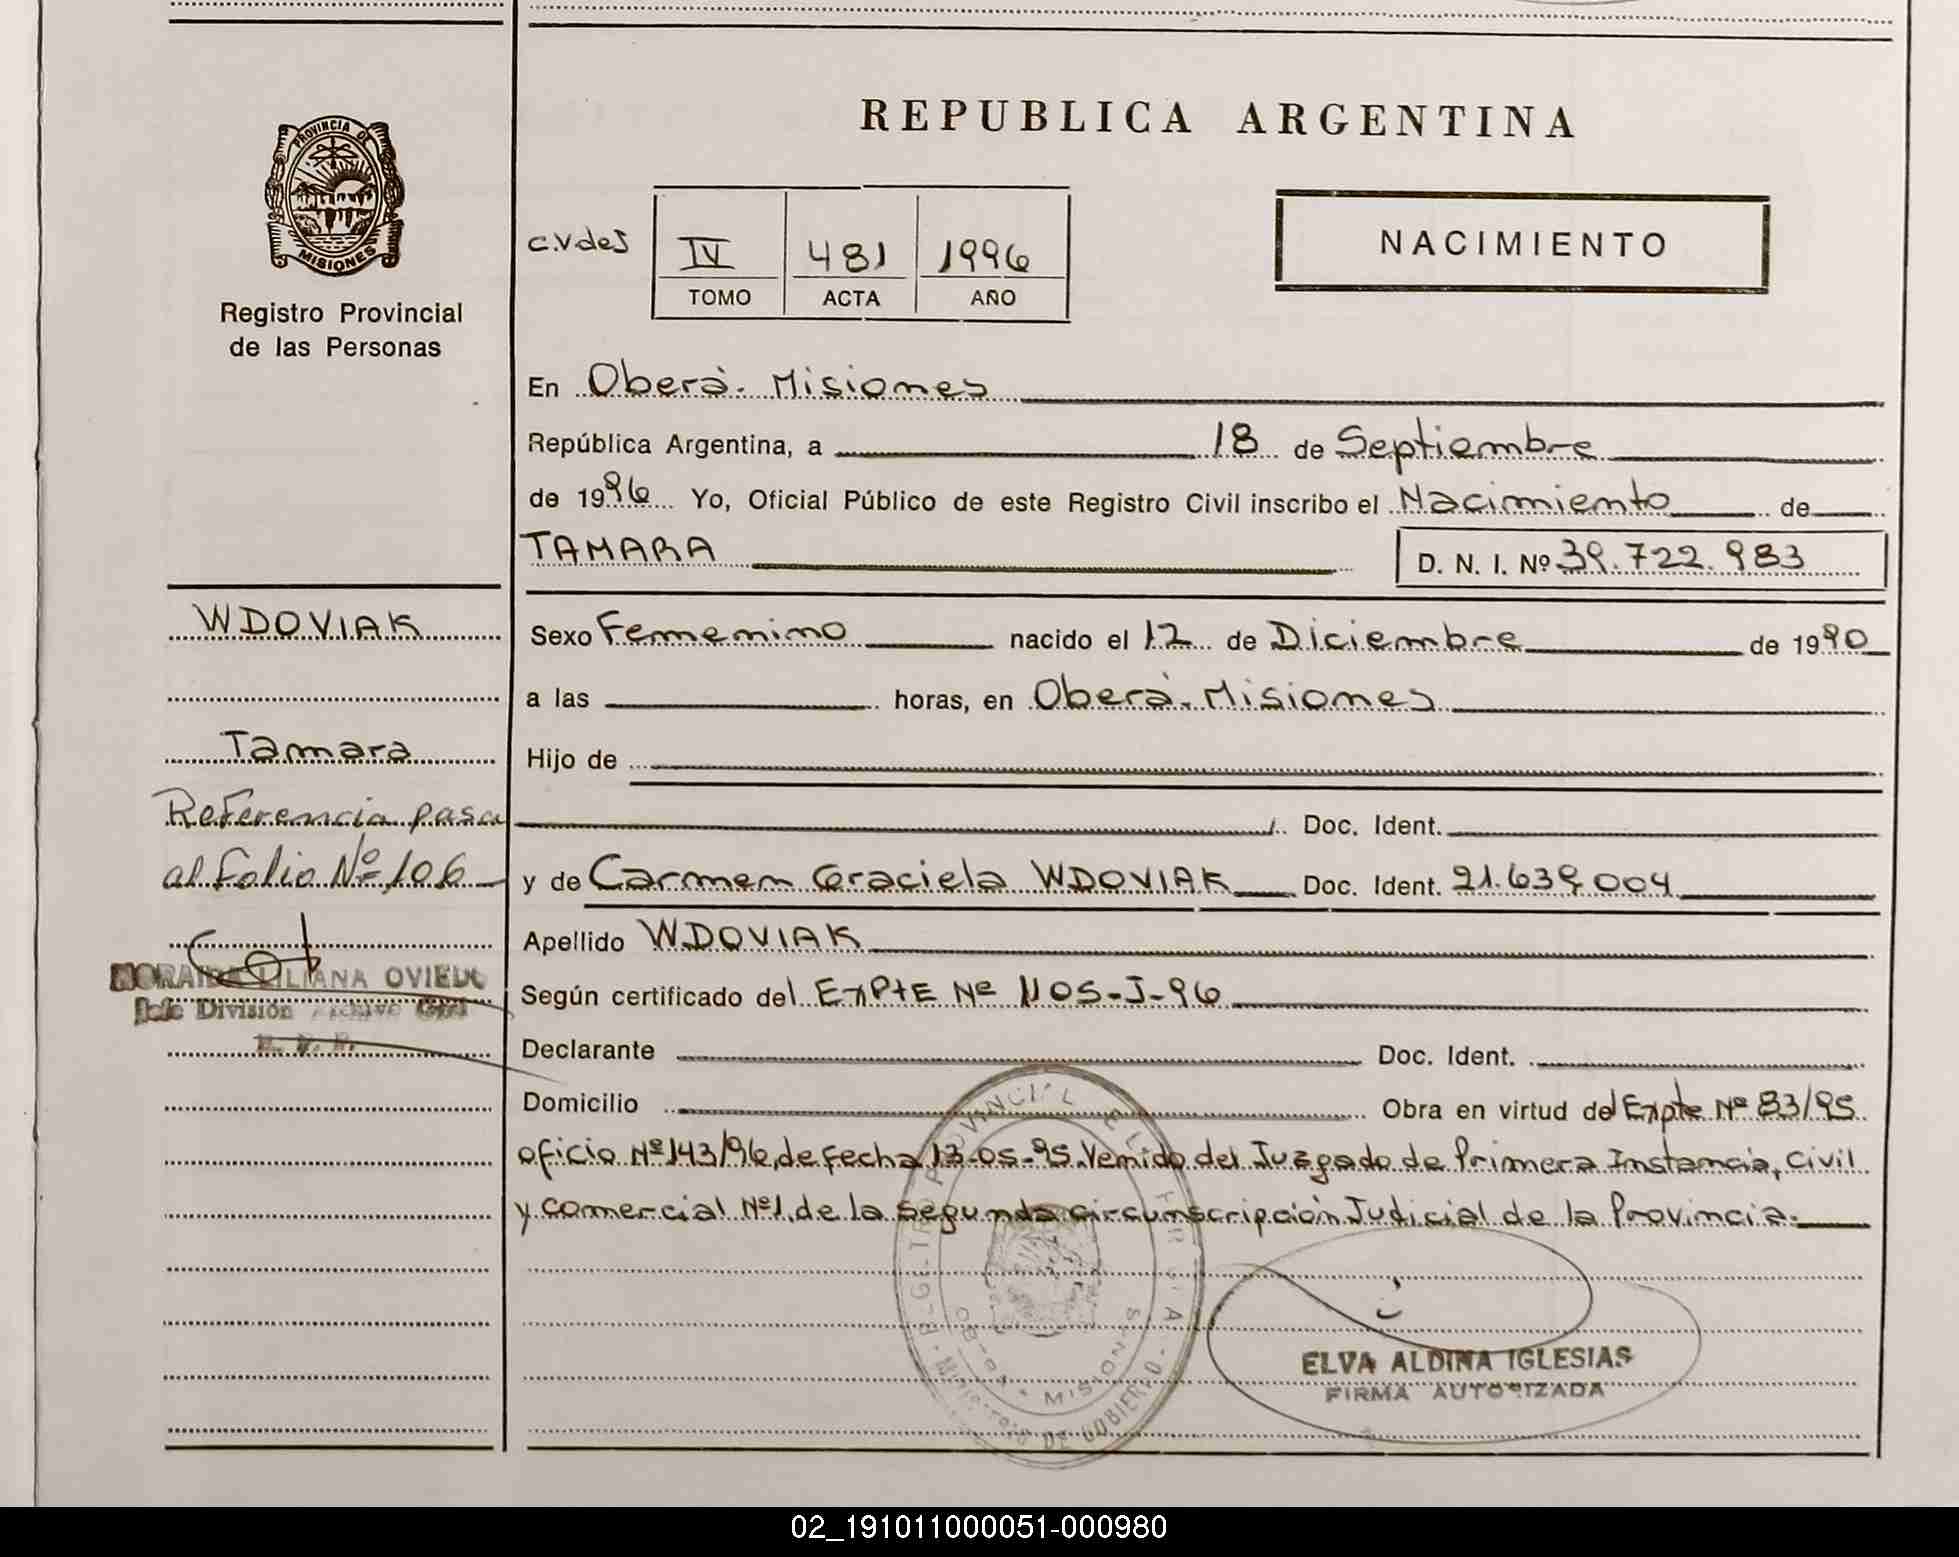 REPUBLICA ARGENTINA
PROVINCIA DE
MISIONES
Registro Provincial
de las Personas
c.v.des
IV 481 1996
TOMO ACTA AÑO
NACIMIENTO
En Oberá. Misiones
República Argentina, a 18 de Septiembre
de 1996 Yo, Oficial Público de este Registro Civil inscribo el Nacimiento de
TAMARA D. N. I. Nº 39.722.983
WDOVIAK
Tamara
Referencia pasa
al folio Nº 106
NORAIDE LILIANA OVIEDO
Jefe División Archivo Civil
R. P. P.
Sexo Femenino nacido el 12 de Diciembre de 1990
a las horas, en Oberá. Misiones
Hijo de
Doc. Ident.
y de Carmen Graciela WDOVIAK Doc. Ident. 21.639.004
Apellido WDOVIAK
Según certificado del ExPtE Nº 1105-J-96
Declarante Doc. Ident.
Domicilio Obra en virtud del Expte Nº 83/95
oficio Nº 143/96, de fecha 13-05-95. Venido del Juzgado de Primera Instancia, civil
y comercial Nº1, de la segunda circunscripción Judicial de la Provincia.
OBERA * MISIONES
MINISTERIO DE GOBIERNO
ELVA ALDINA IGLESIAS
FIRMA AUTORIZADA
02_191011000051-000980